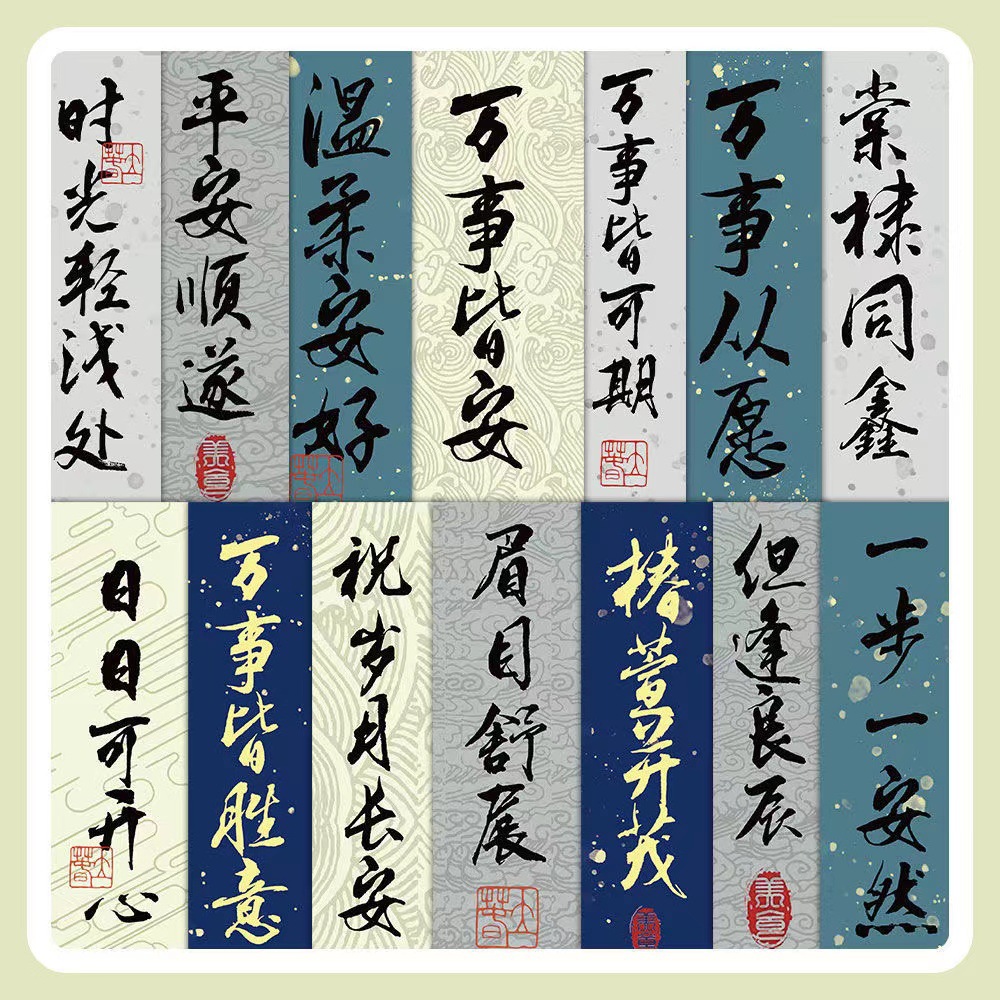 时光轻浅处
平安顺遂
温柔安好
万事皆安
万事皆可期
万事从愿
棠棣同鑫
日日可开心
万事皆胜意
祝岁月长安
眉目舒展
椿萱并茂
但逢良辰
一步一安然